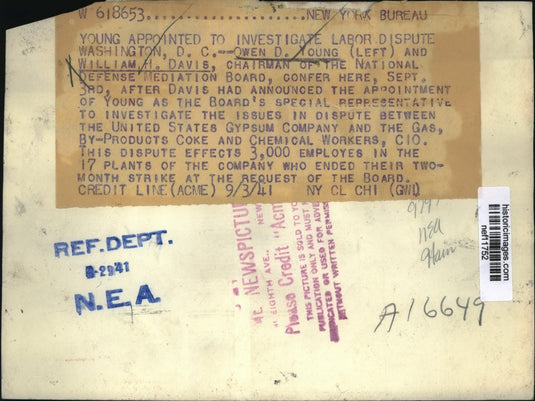 W 618653...................NEW YORK BUREAU
YOUNG APPOINTED TO INVESTIGATE LABOR DISPUTE
WASHINGTON, D. C.--OWEN D. YOUNG (LEFT) AND
WILLIAM H. DAVIS, CHAIRMAN OF THE NATIONAL
DEFENSE MEDIATION BOARD, CONFER HERE, SEPT.
3RD, AFTER DAVIS HAD ANNOUNCED THE APPOINTMENT
OF YOUNG AS THE BOARD'S SPECIAL REPRESENTATIVE
TO INVESTIGATE THE ISSUES IN DISPUTE BETWEEN
THE UNITED STATES GYPSUM COMPANY AND THE GAS,
BY-PRODUCTS COKE AND CHEMICAL WORKERS, CIO.
THIS DISPUTE EFFECTS 3,000 EMPLOYES IN THE
17 PLANTS OF THE COMPANY WHO ENDED THEIR TWO-
MONTH STRIKE AT THE REQUEST OF THE BOARD.
CREDIT LINE (ACME) 9/3/41 NY CL CHI (GW)
REF. DEPT.
8-29 41
N.E.A.
NEWSPICTU
EIGHTH AVE., NEW
Please Credit "Acm
THIS PICTURE IS SOLD TO YO
PUBLICATION ONLY AND MUST N
OR USED FOR ADVE
WITHOUT WRITTEN PERMISS
nea
A16649
historicimages.com
nef11752